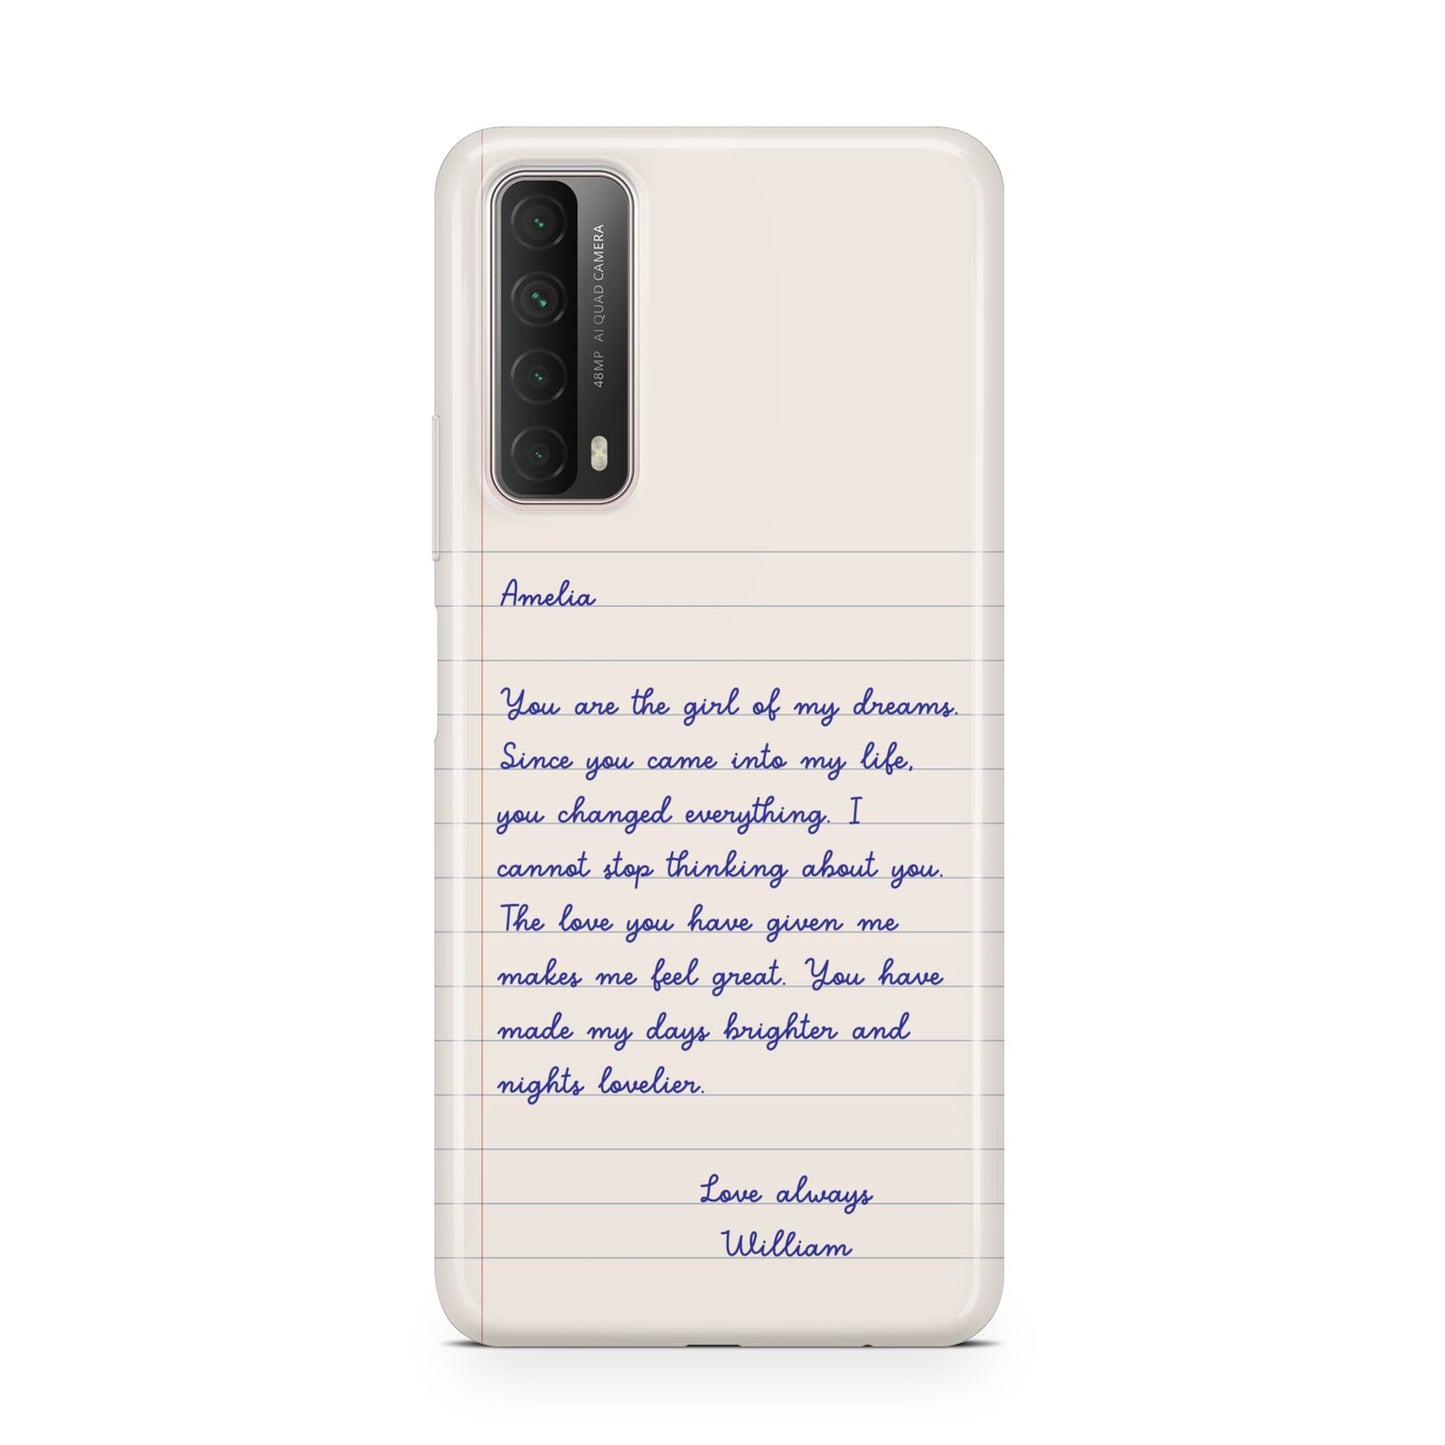 48MP AI QUAD CAMERA
Amelia
You are the girl of my dreams.
Since you came into my life,
you changed everything. I
cannot stop thinking about you.
The love you have given me
makes me feel great. You have
made my days brighter and
nights lovelier.
Love always
William